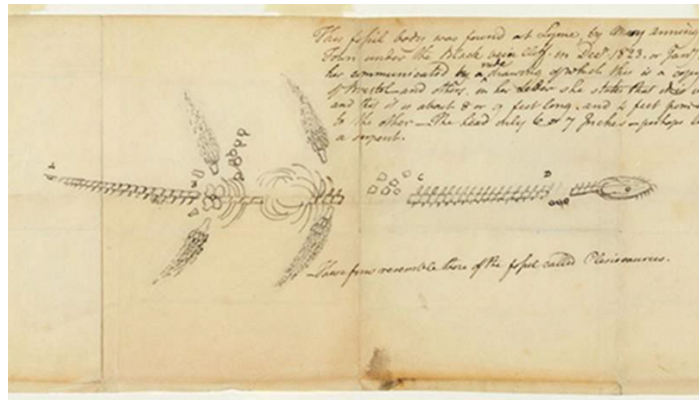 This fossil body was found at Lyme, by Mary Anning
Town under the Black Cliff in Decr 1823. or Jany
has communicated by a rude drawing of which this is a copy
of Bristol—and others. in her Letter she states that
and that it is about 8 or 9 feet long. and 4 feet from
to the other—The head only 6 or 7 Inches—perhaps
a serpent.
C
D
These fins resemble those of the fossil called Plesiosaurus.